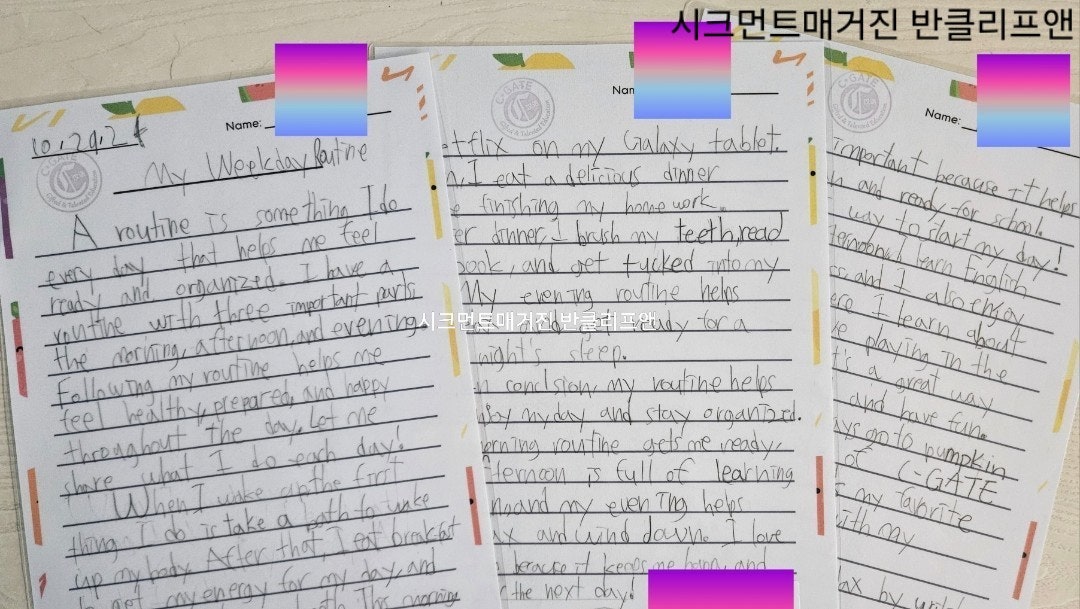 시크먼트매거진 반클리프앤
Name:
10.29.24
My Weekday Routine
A routine is something I do
every day that helps me feel
ready and organized. I have a
routine with three important parts,
the morning, afternoon, and evening.
Following my routine helps me
feel healthy, prepared, and happy
throughout the day. Let me
share what I do each day!
When I wake up the first
thing I do is take a bath to wake
up my body. After that, I eat breakfast
to get my energy for my day, and
teeth. This morning
C·GATE
Gifted & Talented Education
시크먼트매거진 반클리프앤
C·GATE
Gifted & Talented Education
Nam
etflix on my Galaxy tablet.
, I eat a delicious dinner
finishing my homework.
er dinner, I brush my teeth, read
book, and get tucked into my
My evening routine helps
ready for a
night's sleep.
n conclsion, my routine helps
my day and stay organized.
orning routine gets me ready,
fternoon is full of learning
, and my evening helps
ax and wind down. I love
because it keeps me happy and
r the next day!
C·GATE
Name:
important because it helps
and ready for school.
way to start my day!
ternoon, I learn English
ss and I also enjoy
ere I learn about
playing in the
t's a great way
and have fun.
ays go to pumpkin
of C-GATE
s my favorite
with my
lax by